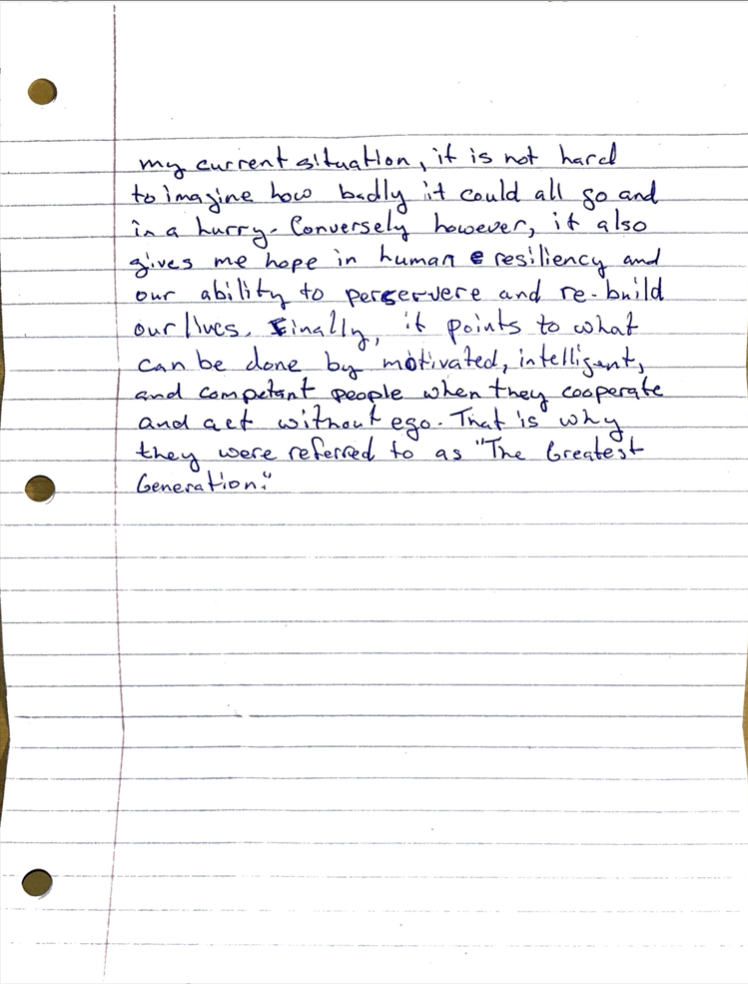 my current situation, it is not hard
to imagine how badly it could all go and
in a hurry. Conversely however, it also
gives me hope in human resiliency and
our ability to perservere and re-build
our lives. Finally, it points to what
can be done by motivated, intelligent,
and competant people when they cooperate
and act without ego. That is why
they were referred to as "The Greatest
Generation."